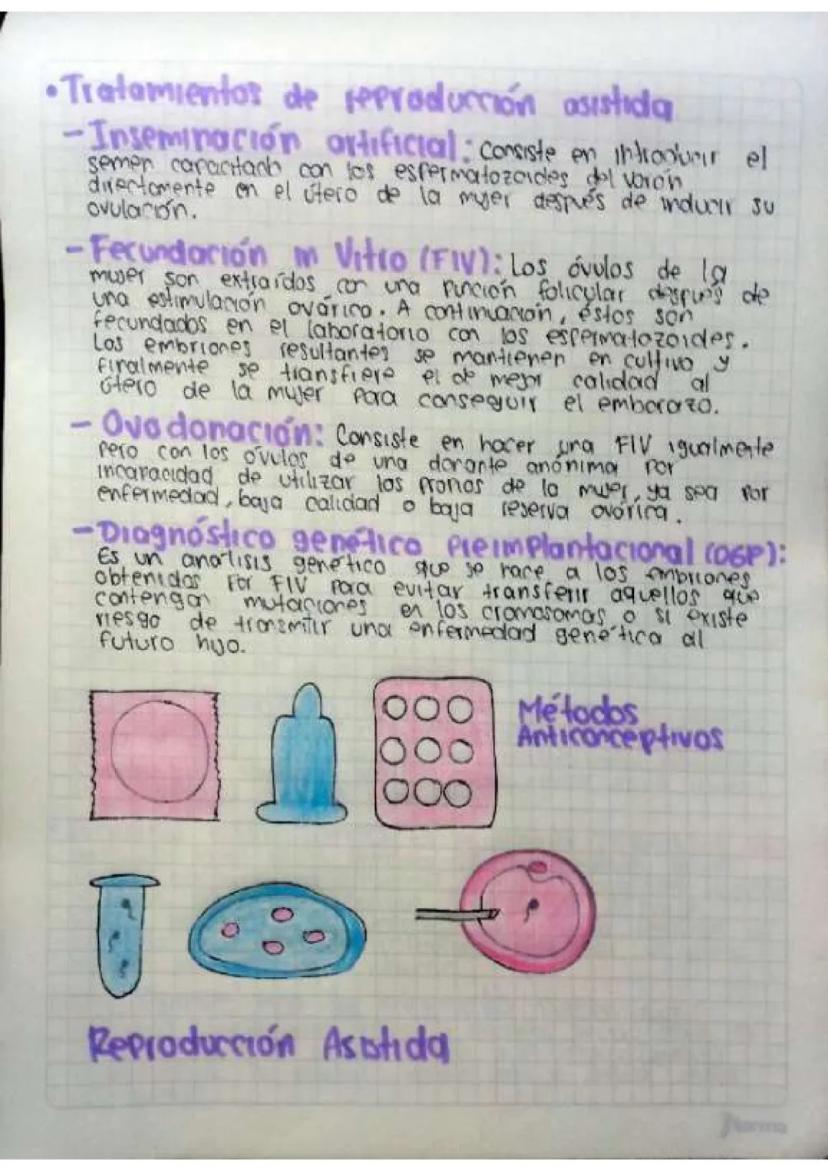 • Tratamientos de reproducción asistida
- Inseminación artificial: Consiste en introducir el
semen capacitado con los espermatozoides del varón
directamente en el útero de la mujer después de inducir su
ovulación.
- Fecundación in Vitro (FIV): Los óvulos de la
mujer son extraídos con una punción folicular después de
una estimulación ovárica. A continuación, éstos son
fecundados en el laboratorio con los espermatozoides.
Los embriones resultantes se mantienen en cultivo y
finalmente se transfiere el de mejor calidad al
útero de la mujer para conseguir el embarazo.
- Ovodonación: Consiste en hacer una FIV igualmente
pero con los óvulos de una donante anónima por
incapacidad de utilizar los propios de la mujer, ya sea por
enfermedad, baja calidad o baja reserva ovárica.
- Diagnóstico genético Preimplantacional (DGP):
Es un análisis genético que se hace a los embriones
obtenidos por FIV para evitar transferir aquellos que
contengan mutaciones en los cromosomas o si existe
riesgo de transmitir una enfermedad genética al
futuro hijo.
Métodos
Anticonceptivos
Reproducción Asistida
Norma